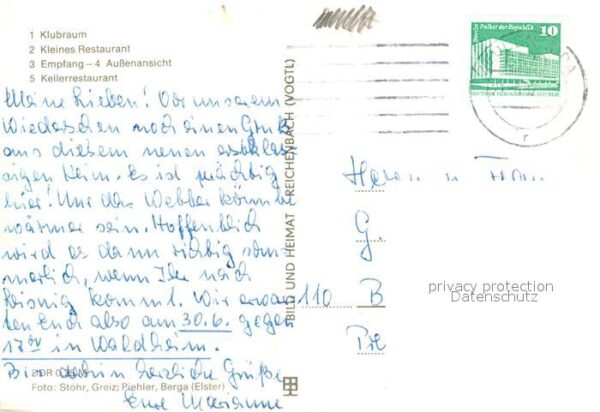 1 Klubraum
2 Kleines Restaurant
3 Empfang – 4 Außenansicht
5 Kellerrestaurant
Meine Lieben! Vor unserem
Wiedersehen noch einen Gruß
aus diesem neuen erstklas-
sigen Heim. Es ist prächtig
hier! Nur das Wetter könnte
wärmer sein. Hoffentlich
wird es dann richtig som-
merlich, wenn Ihr nach
Leisnig kommt. Wir erwar-
ten Euch also am 30.6. gegen
17 in Waldheim.
Bis dahin herzliche Grüße
Eure Marianne
DDR
Foto: Stöhr, Greiz; Piehler, Berga (Elster)
BILD UND HEIMAT REICHENBACH (VOGTL)
Berlin Palast der Republik
10
DEUTSCHE DEMOKRATISCHE REPUBLIK
Herrn u Frau
G.
110 B
privacy protection
Datenschutz